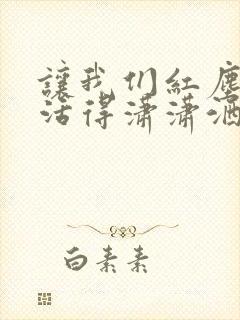 讓我们紅塵
活得潇潇洒
白素素